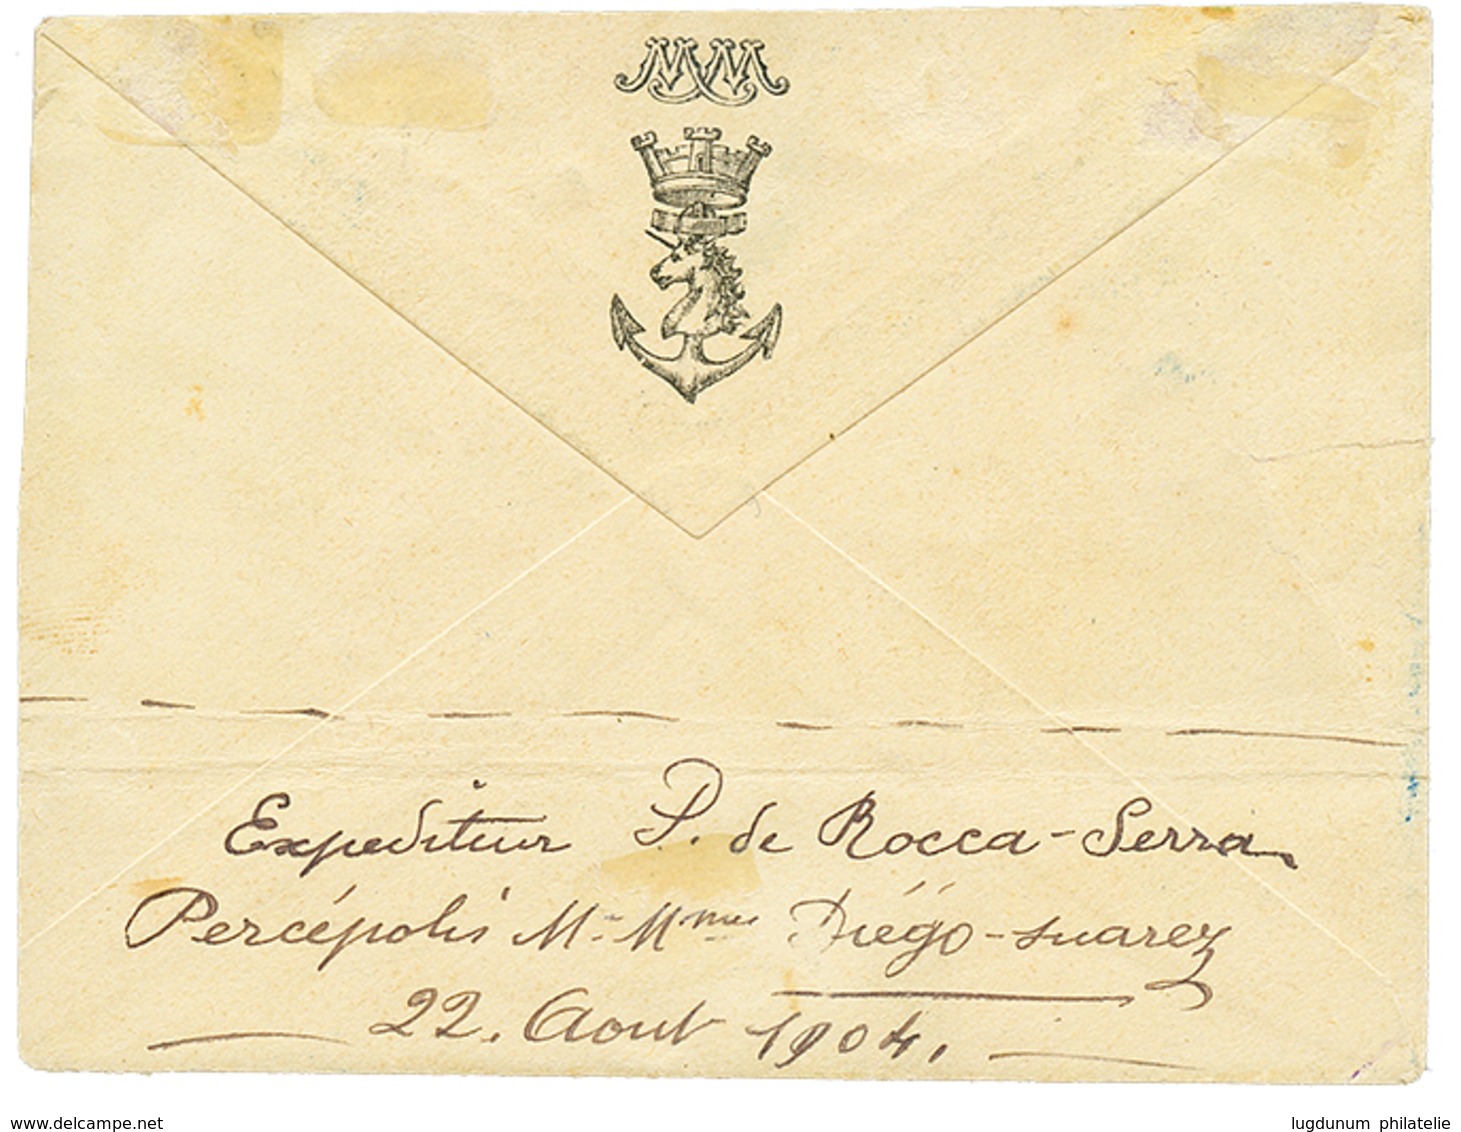 MM
Expediteur P. de Rocca-Serra
Percépolis M. Mmes Diégo-suarez
22. Aout 1904.
www.delcampe.net
lugdunum philatelie